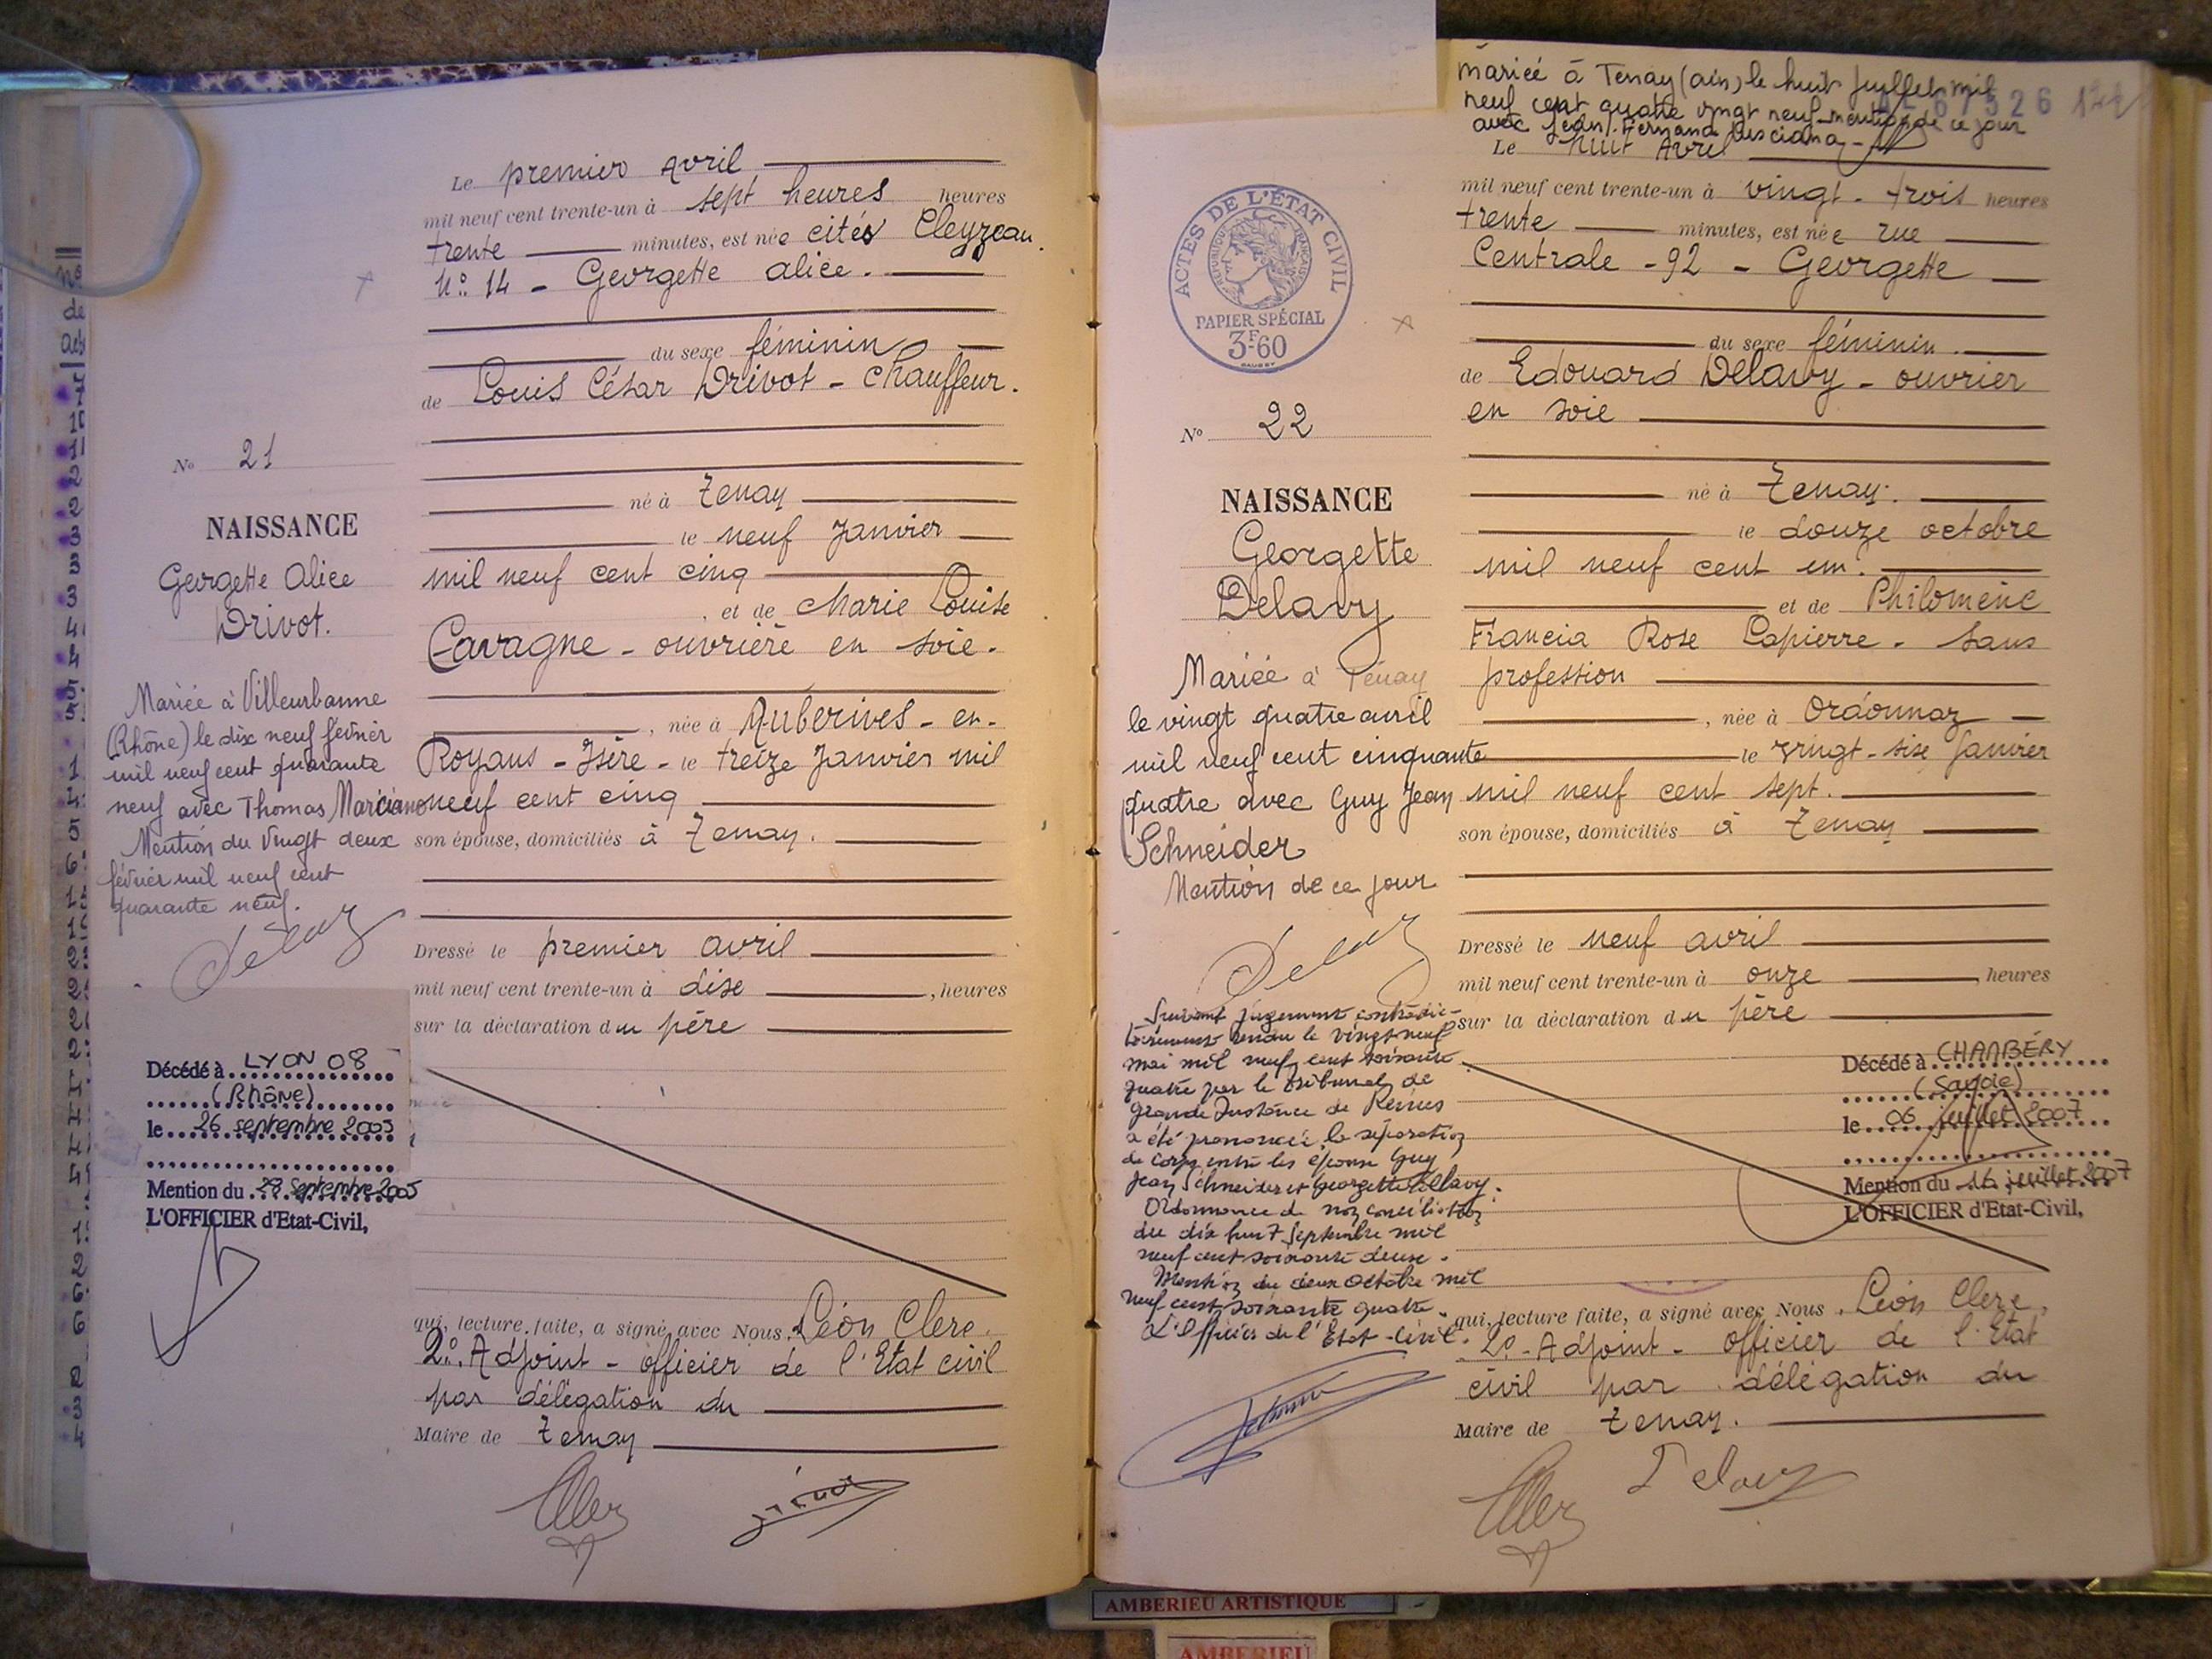 Le premier avril
mil neuf cent trente-un à sept heures heures
trente minutes, est née cités Cleyzeau
No. 14 - Georgette alice.
du sexe féminin
de Louis César Drivot - chauffeur.
né à Tenay
le neuf Janvier
mil neuf cent cinq
, et de Marie Louise
Cavagne - ouvrière en soie.
, née à Auberives - en -
Royans - Isère - le treize Janvier mil
neuf cent cinq
son épouse, domiciliés à Tenay.
Dressé le premier avril
mil neuf cent trente-un à dixe , heures
sur la déclaration du père
qui, lecture faite, a signé avec Nous, Léon Clerc.
2e. Adjoint - officier de l'Etat civil
par délégation du
Maire de Tenay
No 21
NAISSANCE
Georgette Alice
Drivot.
Mariée à Villeurbanne
(Rhône) le dix neuf février
mil neuf cent quarante
neuf avec Thomas Marciano
Mention du Vingt deux
février mil neuf cent
quarante neuf.
Delavy
Décédé à LYON 08
(Rhône)
le 26 septembre 2005
Mention du 29 Septembre 2005
L'OFFICIER d'Etat-Civil,
mariée à Tenay (ain) le huit Juillet mil
neuf cent quatre vingt neuf - mention de ce jour
avec Jean Fernand
67526 122
Le huit Avril
mil neuf cent trente-un à vingt - trois heures
trente minutes, est née rue
Centrale - 92 - Georgette
du sexe féminin.
de Edouard Delavy - ouvrier
en soie
né à Tenay.
le douze octobre
mil neuf cent un.
et de Philomène
Francia Rose Lapierre - sans
profession
, née à Ordonnaz
le vingt - six Janvier
mil neuf cent sept.
son épouse, domiciliés à Tenay
Dressé le neuf avril
mil neuf cent trente-un à onze , heures
sur la déclaration du père
qui, lecture faite, a signé avec Nous, Léon Clerc,
2e - Adjoint - officier de l'Etat
civil par délégation du
Maire de Tenay.
Delavy
ACTES DE L'ÉTAT CIVIL
RÉPUBLIQUE FRANÇAISE
PAPIER SPÉCIAL
3F60
No 22
NAISSANCE
Georgette
Delavy
Mariée à Tenay
le vingt quatre avril
mil neuf cent cinquante
quatre avec Guy Jean
Schneider
Mention de ce jour
Delavy
Suivant jugement contradic-
toirement rendu le vingt neuf
mai mil neuf cent soixante
quatre par le tribunal de
Grande Instance de Reims
a été prononcée la séparation
de corps entre les époux Guy
Jean Schneider et Georgette Delavy.
Ordonnance de non conciliation
du dix huit Septembre mil
neuf cent soixante deux.
Mention du deux Octobre mil
neuf cent soixante quatre.
L'Officier de l'Etat-Civil.
Décédé à CHAMBÉRY
(Savoie)
le 06 juillet 2007
Mention du 16 juillet 2007
L'OFFICIER d'Etat-Civil,
AMBERIEU ARTISTIQUE
AMBERIEU